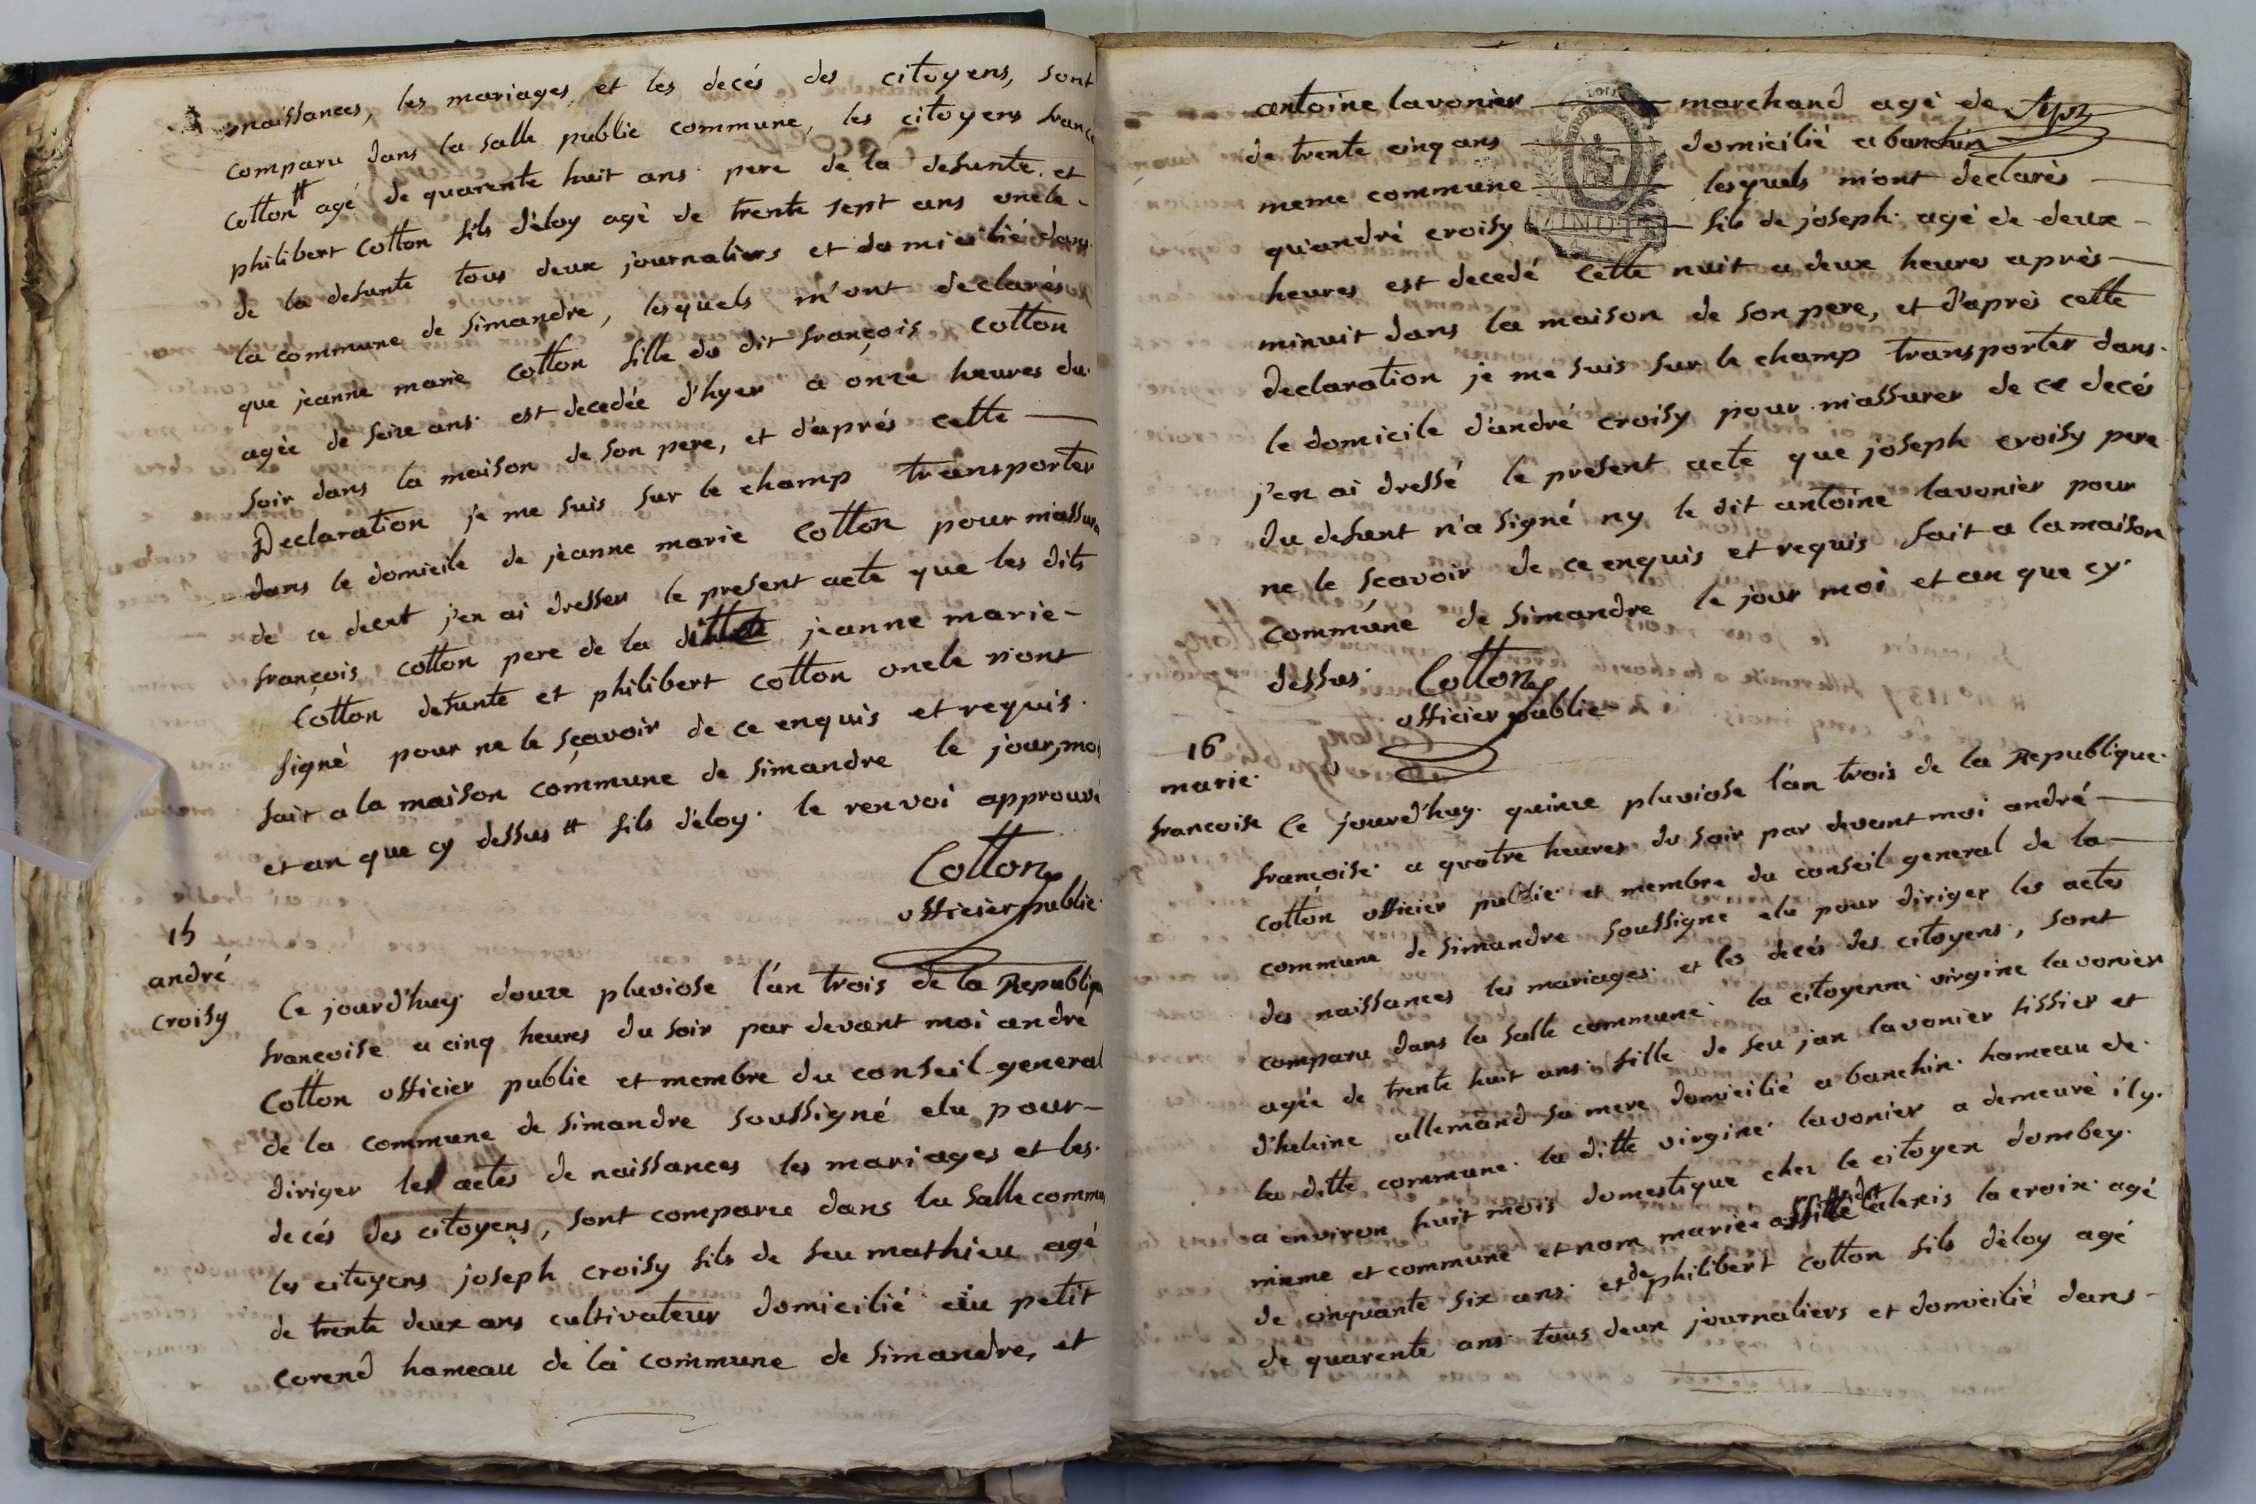 naissances, les mariages, et les decés des citoyens, sont
comparu dans la salle public commune, les citoyens franç
Cotton # agé de quarente huit ans pere de la defunte et
philibert Cotton fils d'éloy agè de trente sept ans oncle -
de la defunte tous deux journaliers et domicilié dans
la commune de Simandre, lesquels m'ont declarés
que jeanne marie Cotton fille du dit françois Cotton
agèe de seize ans est decedée d'hyer a onze heures du
soir dans la maison de son pere, et d'aprés cette
Declaration je me suis sur le champ transporter
dans le domicile de jeanne marie Cotton pour m'assurer
de ce decet j'en ai dresser le present acte que les dits
françois Cotton pere de la ditte jeanne marie -
Cotton defunte et philibert Cotton oncle n'ont
signé pour ne le sçavoir de ce enquis et requis.
fait a la maison commune de Simandre le jour, moi
et an que cy dessus # fils d'éloy. le renvoi approuvé
Cotton
officier public.
15
andré
croisy
Ce jourd'huy douze pluviose l'an trois de la Republiq
francoise a cinq heures du soir par devant moi andré
Cotton officier public et membre du conseil general
de la commune de Simandre soussigné elu pour -
diriger les actes de naissances les mariages et les
decés des citoyens, sont comparu dans la salle commu
les citoyens joseph croisy fils de feu mathieu agé
de trente deux ans cultivateur domicilié au petit
corend hameau de la commune de Simandre, et
antoine lavonier marchand agè de
de trente cinq ans domicilié a banchin
meme commune lesquels m'ont declarès
MINUTE
qu'andré croisy fils de joseph agé de deux -
heures est decedé cette nuit a deux heures après
minuit dans la maison de son pere, et d'après cette
declaration je me suis sur le champ transporter dans
le domicile d'andré croisy pour m'assurer de ce decés
j'en ai dressé le present acte que joseph croisy pere
du defunt n'a signé ny le dit antoine lavonier pour
ne le sçavoir de ce enquis et requis fait a la maison
commune de Simandre le jour moi et an que cy
dessus. Cotton
officier public
16
marie
francoise
Ce jourd'huy quinze pluviose l'an trois de la Republique
françoise a quatre heures du soir par devant moi andré
Cotton officier public et membre du conseil general de la
commune de Simandre soussigne elu pour diriger les actes
des naissances les mariages et les decés des citoyens, sont
comparu dans la salle commune la citoyenne virgine lavonier
agée de trente huit ans fille de feu jan lavonier tissier et
d'heleine allemand sa mere domicilié a banchin hameau de
la ditte commune la ditte virgine lavonier a demeuré il y
a environ huit mois domestique chez le citoyen dombey
mieme et commune et nom mariée alexis la croix agé
de cinquante six ans et de philibert Cotton fils d'éloy agé
de quarente ans tous deux journaliers et domicilié dans -